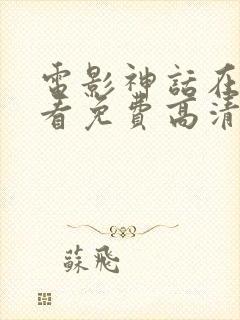 電影神話在
看免費高清
蘇飛